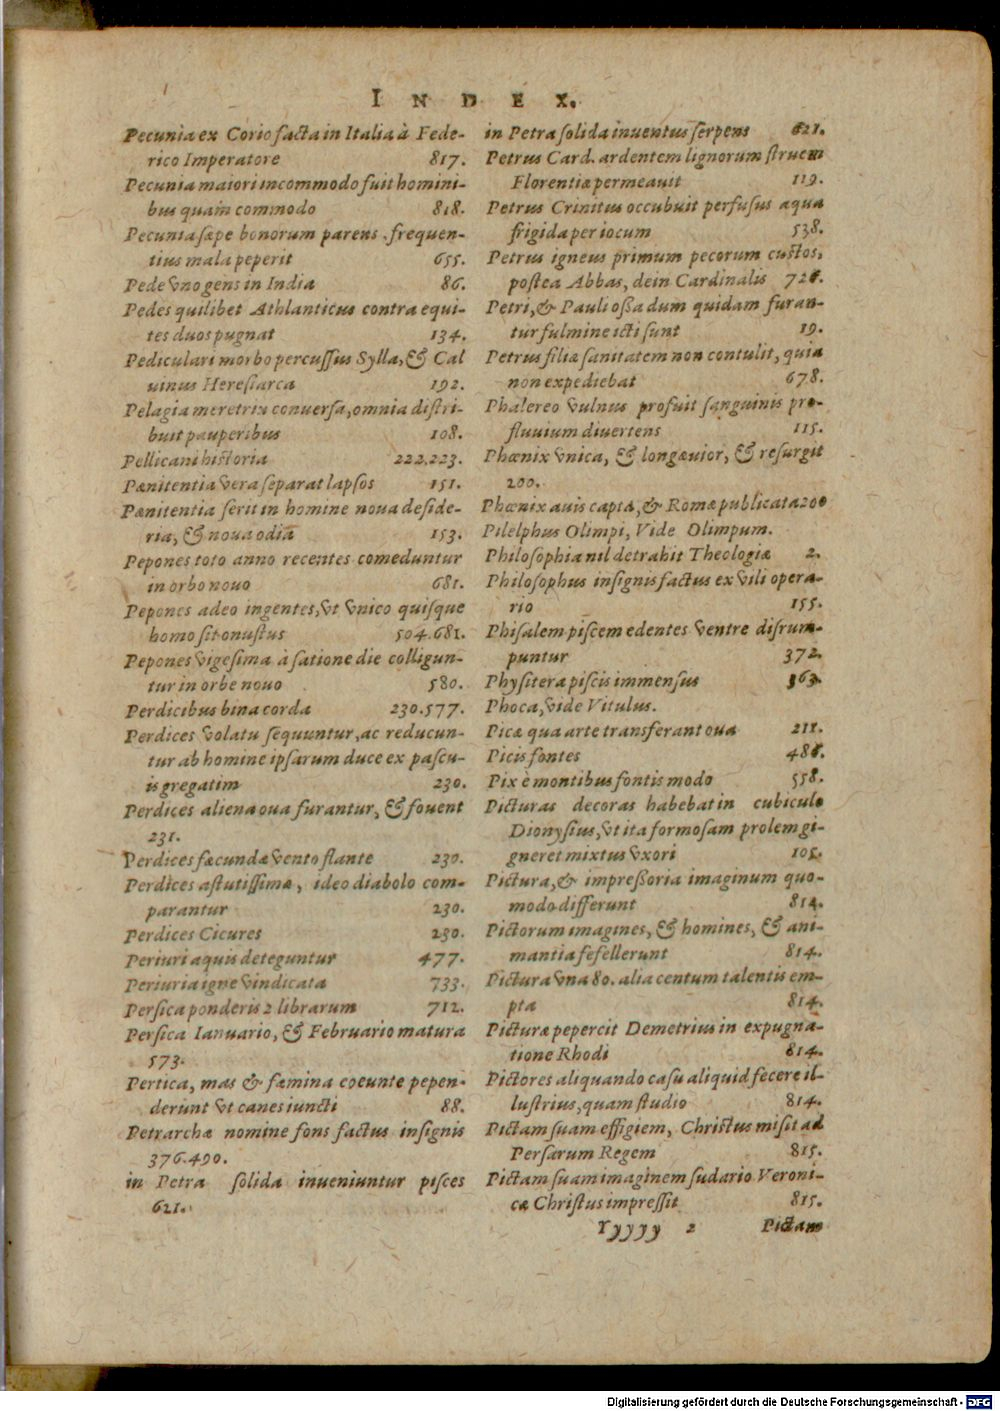 INDEX.
Pecunia ex Corio facta in Italia à Fede-
rico Imperatore 817.
Pecunia maiori incommodo fuit homini-
bus quam commodo 818.
Pecunia sæpe bonorum parens, frequen-
tius mala peperit 655.
Pede vno gens in India 86.
Pedes quilibet Athlanticus contra equi-
tes duos pugnat 134.
Pediculari morbo percussius Sylla, & Cal
uinus Heresiarca 192.
Pelagia meretrix conuersa, omnia distri-
buit pauperibus 108.
Pellicani historia 222.223.
Pænitentia vera separat lapsos 151.
Pænitentia serit in homine noua deside-
ria, & noua odia 153.
Pepones toto anno recentes comeduntur
in orbo nouo 681.
Pepones adeo ingentes, vt vnico quisque
homo sit onustus 504.681.
Pepones vigesima à satione die colligun-
tur in orbe nouo 580.
Perdicibus bina corda 230.577.
Perdices volatu sequuntur, ac reducun-
tur ab homine ipsarum duce ex pascu-
is gregatim 230.
Perdices aliena oua furantur, & fouent
231.
Perdices fæcundæ vento flante 230.
Perdices astutissimæ, ideo diabolo com-
parantur 230.
Perdices Cicures 230.
Periuri aquis deteguntur 477.
Periuria igne vindicata 733.
Persica ponderis 2 librarum 712.
Persica Ianuario, & Februario matura
573.
Pertica, mas & fæmina coeunte pepen-
derunt vt canes iuncti 88.
Petrarchæ nomine fons factus insignis
376.490.
in Petra solida inueniuntur pisces
621.
in Petra solida inuentus serpens 621.
Petrus Card. ardentem lignorum struem
Florentiæ permeauit 119.
Petrus Crinitus occubuit perfusus aqua
frigida per iocum 538.
Petrus igneus primum pecorum custos,
postea Abbas, dein Cardinalis 726.
Petri, & Pauli ossa dum quidam furan-
tur fulmine icti sunt 19.
Petrus filiæ sanitatem non contulit, quia
non expediebat 678.
Phalereo vulnus profuit sanguinis pro-
fluuium diuertens 115.
Phœnix vnica, & longæuior, & resurgit
200.
Phœnix auis capta, & Romæ publicata 200
Pilelphus Olimpi, Vide Olimpum.
Philosophia nil detrahit Theologiæ 2.
Philosophus insignis factus ex vili opera-
rio 155.
Phisalem piscem edentes ventre disrum-
puntur 372.
Physitera piscis immensus 363.
Phoca, vide Vitulus.
Picæ qua arte transferant oua 211.
Picis fontes 486.
Pix è montibus fontis modo 558.
Picturas decoras habebat in cubiculo
Dionysius, vt ita formosam prolem gi-
gneret mixtus vxori 105.
Pictura, & impressoria imaginum quo-
modo differunt 814.
Pictorum imagines, & homines, & ani-
mantia fefellerunt 814.
Pictura vna 80. alia centum talentis em-
pta 814.
Picturæ pepercit Demetrius in expugna-
tione Rhodi 814.
Pictores aliquando casu aliquid fecere il-
lustrius, quam studio 814.
Pictam suam effigiem, Christus misit ad
Persarum Regem 815.
Pictam suam imaginem sudario Veroni-
cæ Christus impressit 815.
Yyyyy 2 Pictam
Digitalisierung gefördert durch die Deutsche Forschungsgemeinschaft - DFG